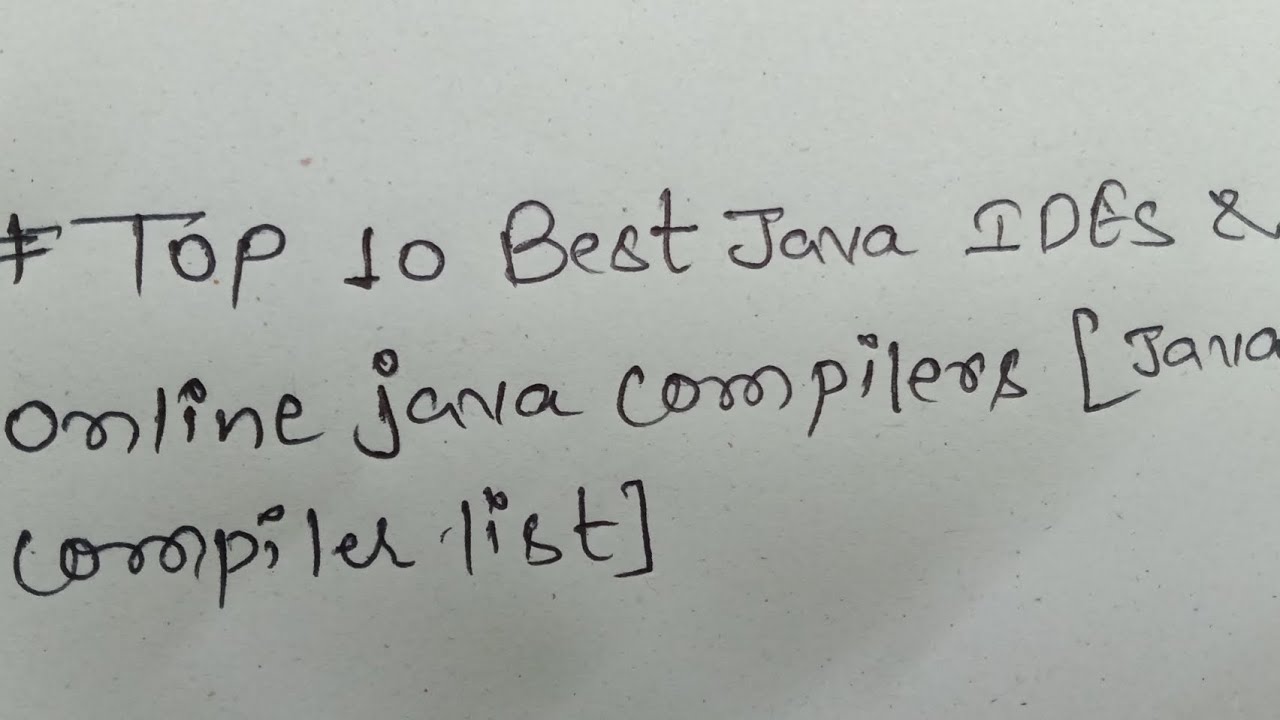 # Top 10 Best Java IDEs &
online java compilers [Java
compiler list]